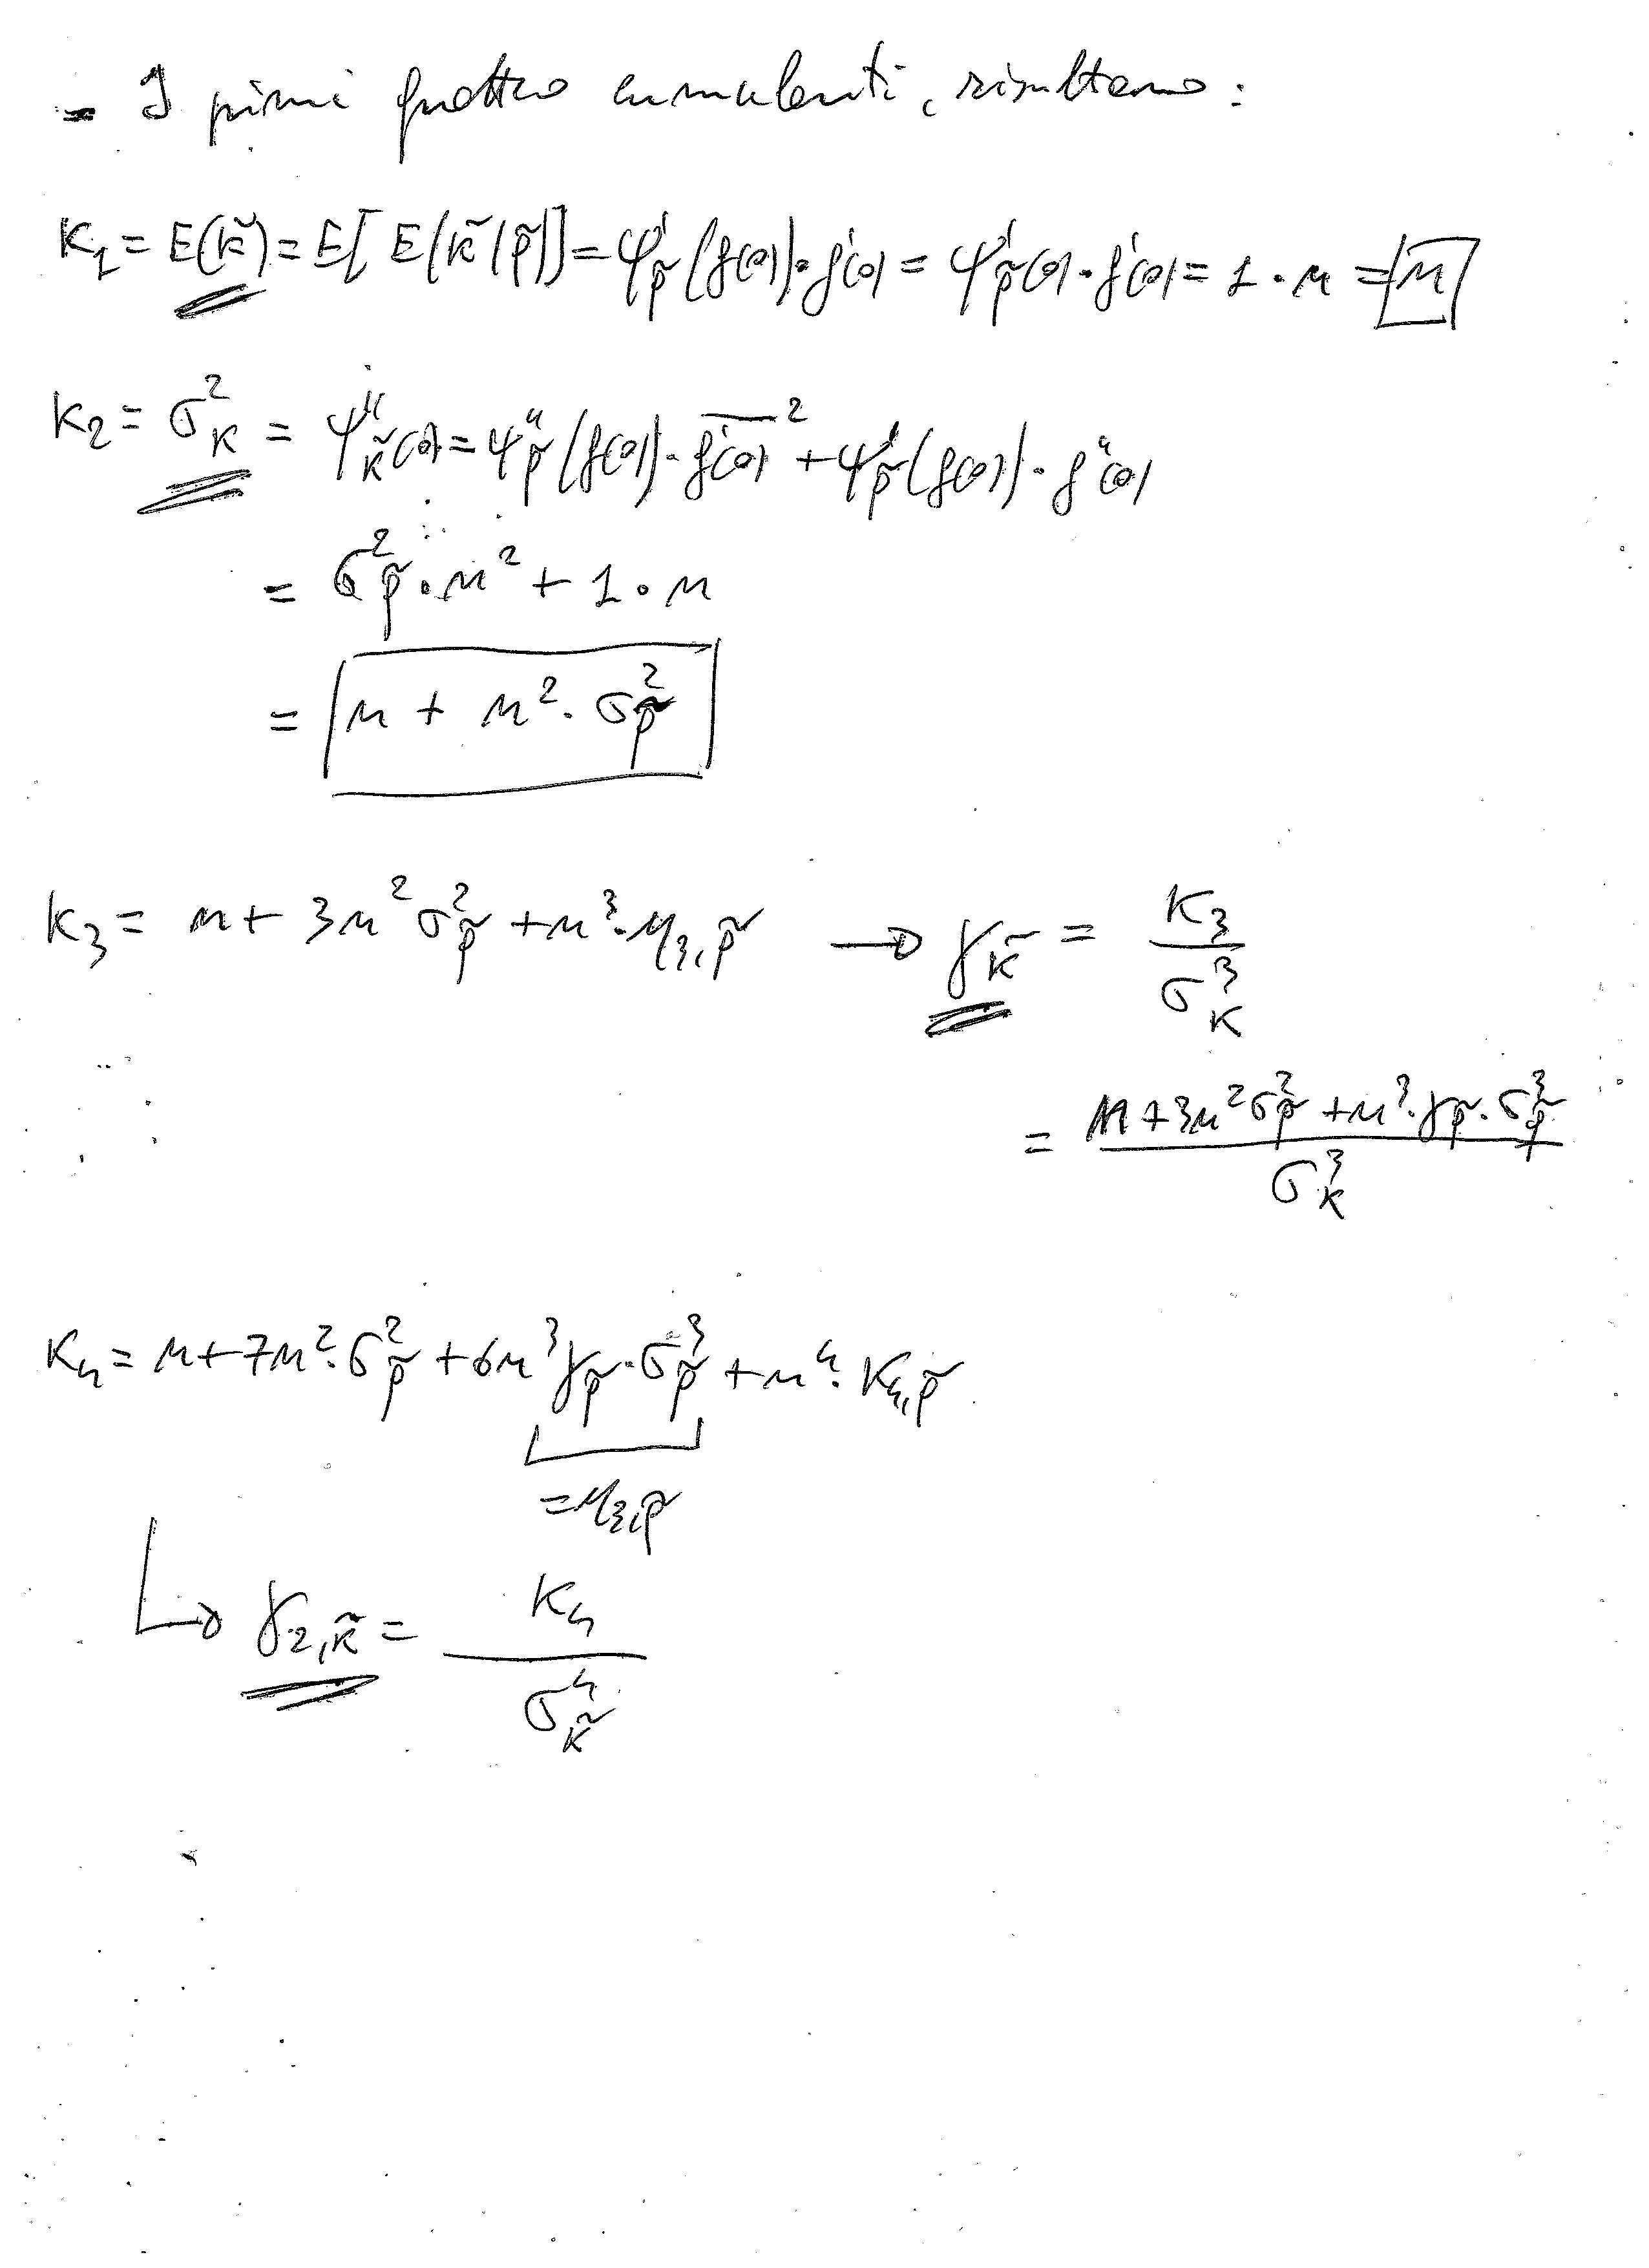 - I primi quattro cumulanti, risultano:
K₁ = E(k̃) = E[E(k̃|p̃)] = ψ'p̃(g(0))·g'(0) = ψ'p̃(0)·g'(0) = 1·n = n
K₂ = σ²K = ψ''k̃(0) = ψ''p̃(g(0))·g'(0)² + ψ'p̃(g(0))·g''(0)
= σ²p̃·n² + 1·n
= n + n²·σ²p̃
K₃ = n + 3n²σ²p̃ + n³·μ₃,p̃ → γk̃ = K₃/σ³K
= (n + 3n²σ²p̃ + n³·γp̃·σ³p̃)/σ³K
K₄ = n + 7n²·σ²p̃ + 6n³γp̃·σ³p̃ + n⁴·K₄,p̃
= μ₃,p̃
↳ γ₂,k̃ = K₄/σ⁴k̃